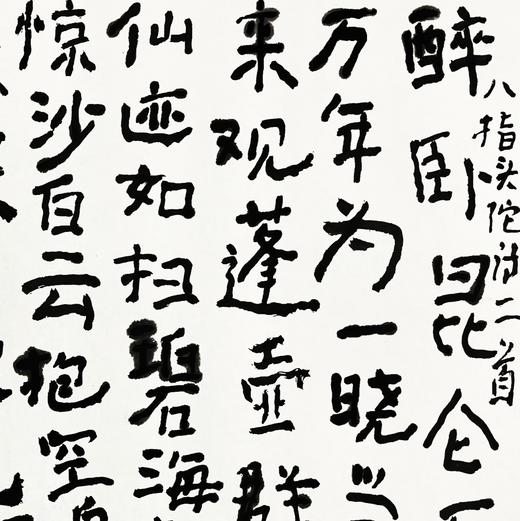 醉卧昆仑一
八指头陀诗二首
万年为一晓
来观蓬壶群
仙迹如扫碧海
惊沙白云抱空